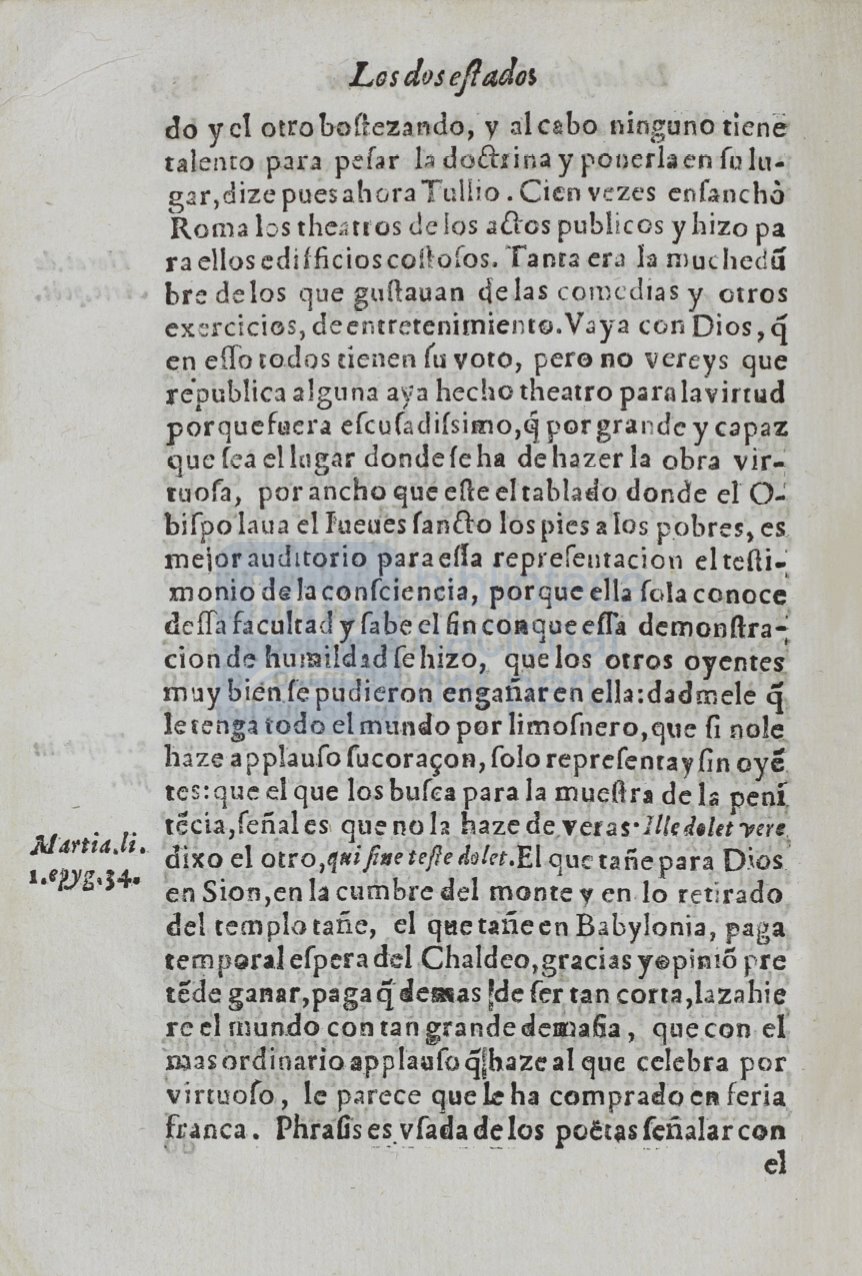 Los dos eſtados
do y el otro boſtezando, y al cabo ninguno tiene
talento para peſar la doctrina y ponerla en ſu lu-
gar, dize pues ahora Tullio. Cien vezes enſanchò
Roma los theatros de los actos publicos y hizo pa
ra ellos edifficios coſtoſos. Tanta era la muchedũ
bre de los que guſtauan de las comedias y otros
exercicios, de entretenimiento. Vaya con Dios, q̃
en eſſo todos tienen ſu voto, pero no vereys que
republica alguna aya hecho theatro para la virtud
porque fuera eſcuſadiſsimo, q̃ por grande y capaz
que ſea el lugar donde ſe ha de hazer la obra vir-
tuoſa, por ancho que eſte el tablado donde el O-
biſpo laua el Iueues ſancto los pies a los pobres, es
mejor auditorio para eſſa repreſentacion el teſti-
monio de la conſciencia, porque ella ſola conoce
deſſa facultad y ſabe el fin con que eſſa demonſtra-
cion de humildad ſe hizo, que los otros oyentes
muy bien ſe pudieron engañar en ella: dadmele q̃
le tenga todo el mundo por limoſnero, que ſi no le
haze applauſo ſu coraçon, ſolo repreſenta y ſin oyẽ
tes: que el que los buſca para la mueſtra de la peni
tẽcia, ſeñal es que no la haze de veras. Ille dolet vere
Martia. li.
1. epyg. 34.
dixo el otro, qui ſine teſte dolet. El que tañe para Dios
en Sion, en la cumbre del monte y en lo retirado
del templo tañe, el que tañe en Babylonia, paga
temporal eſpera del Chaldeo, gracias y opiniõ pre
tẽde ganar, paga q̃ demas de ſer tan corta, la zahie
re el mundo con tan grande demaſia, que con el
mas ordinario applauſo q̃ haze al que celebra por
virtuoſo, le parece que le ha comprado en feria
franca. Phraſis es vſada de los poëtas ſeñalar con
el